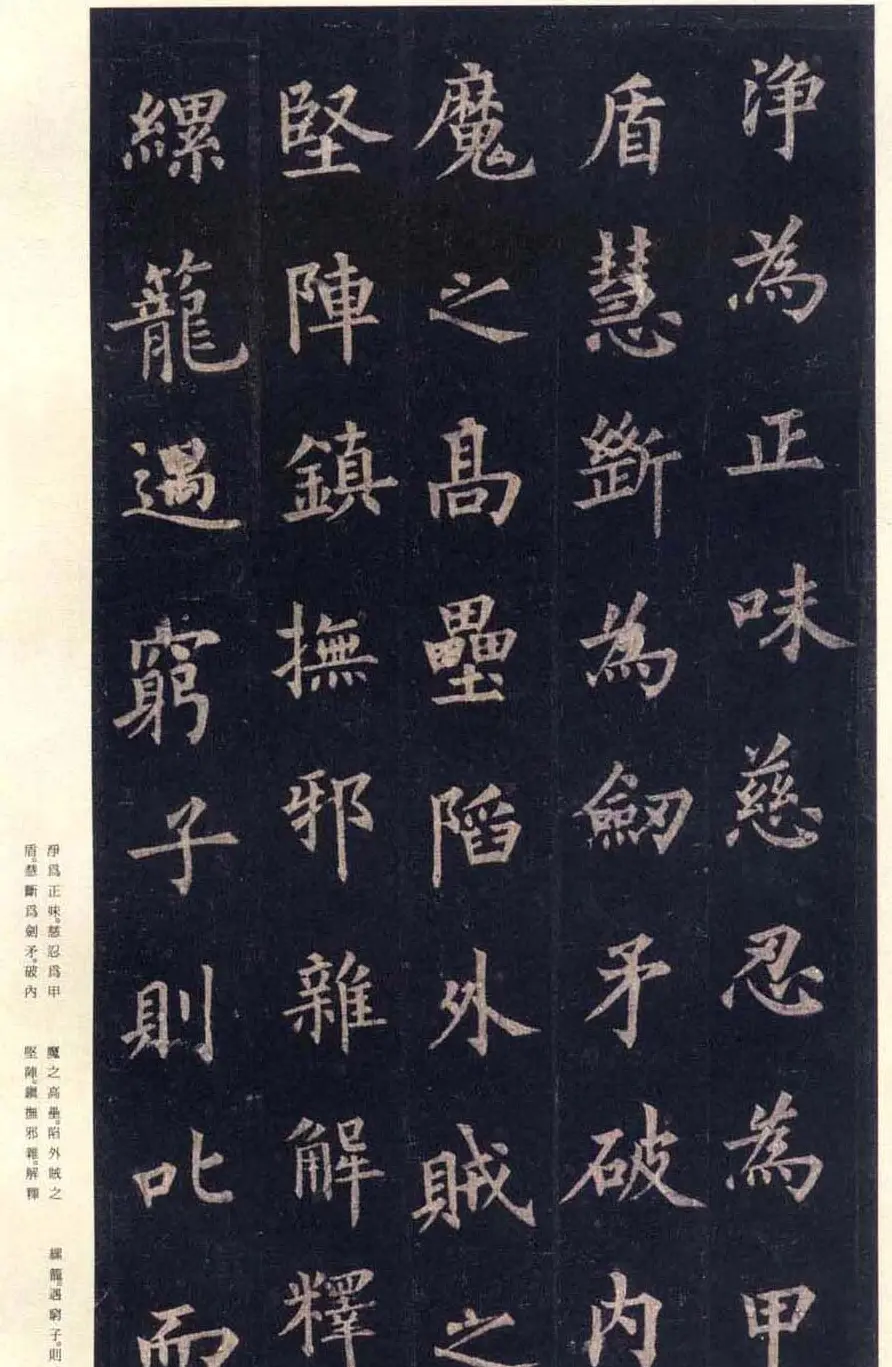 淨為正味慈忍為甲
盾慧斷為劒矛破内
魔之高壘陷外賊之
堅陣鎮撫邪雜解釋
縲籠遇窮子則叱而
淨爲正味。慈忍爲甲
盾。慧斷爲劍矛。破內
魔之高壘。陷外賊之
堅陣。鎭撫邪雜。解釋
縲籠。遇窮子。則